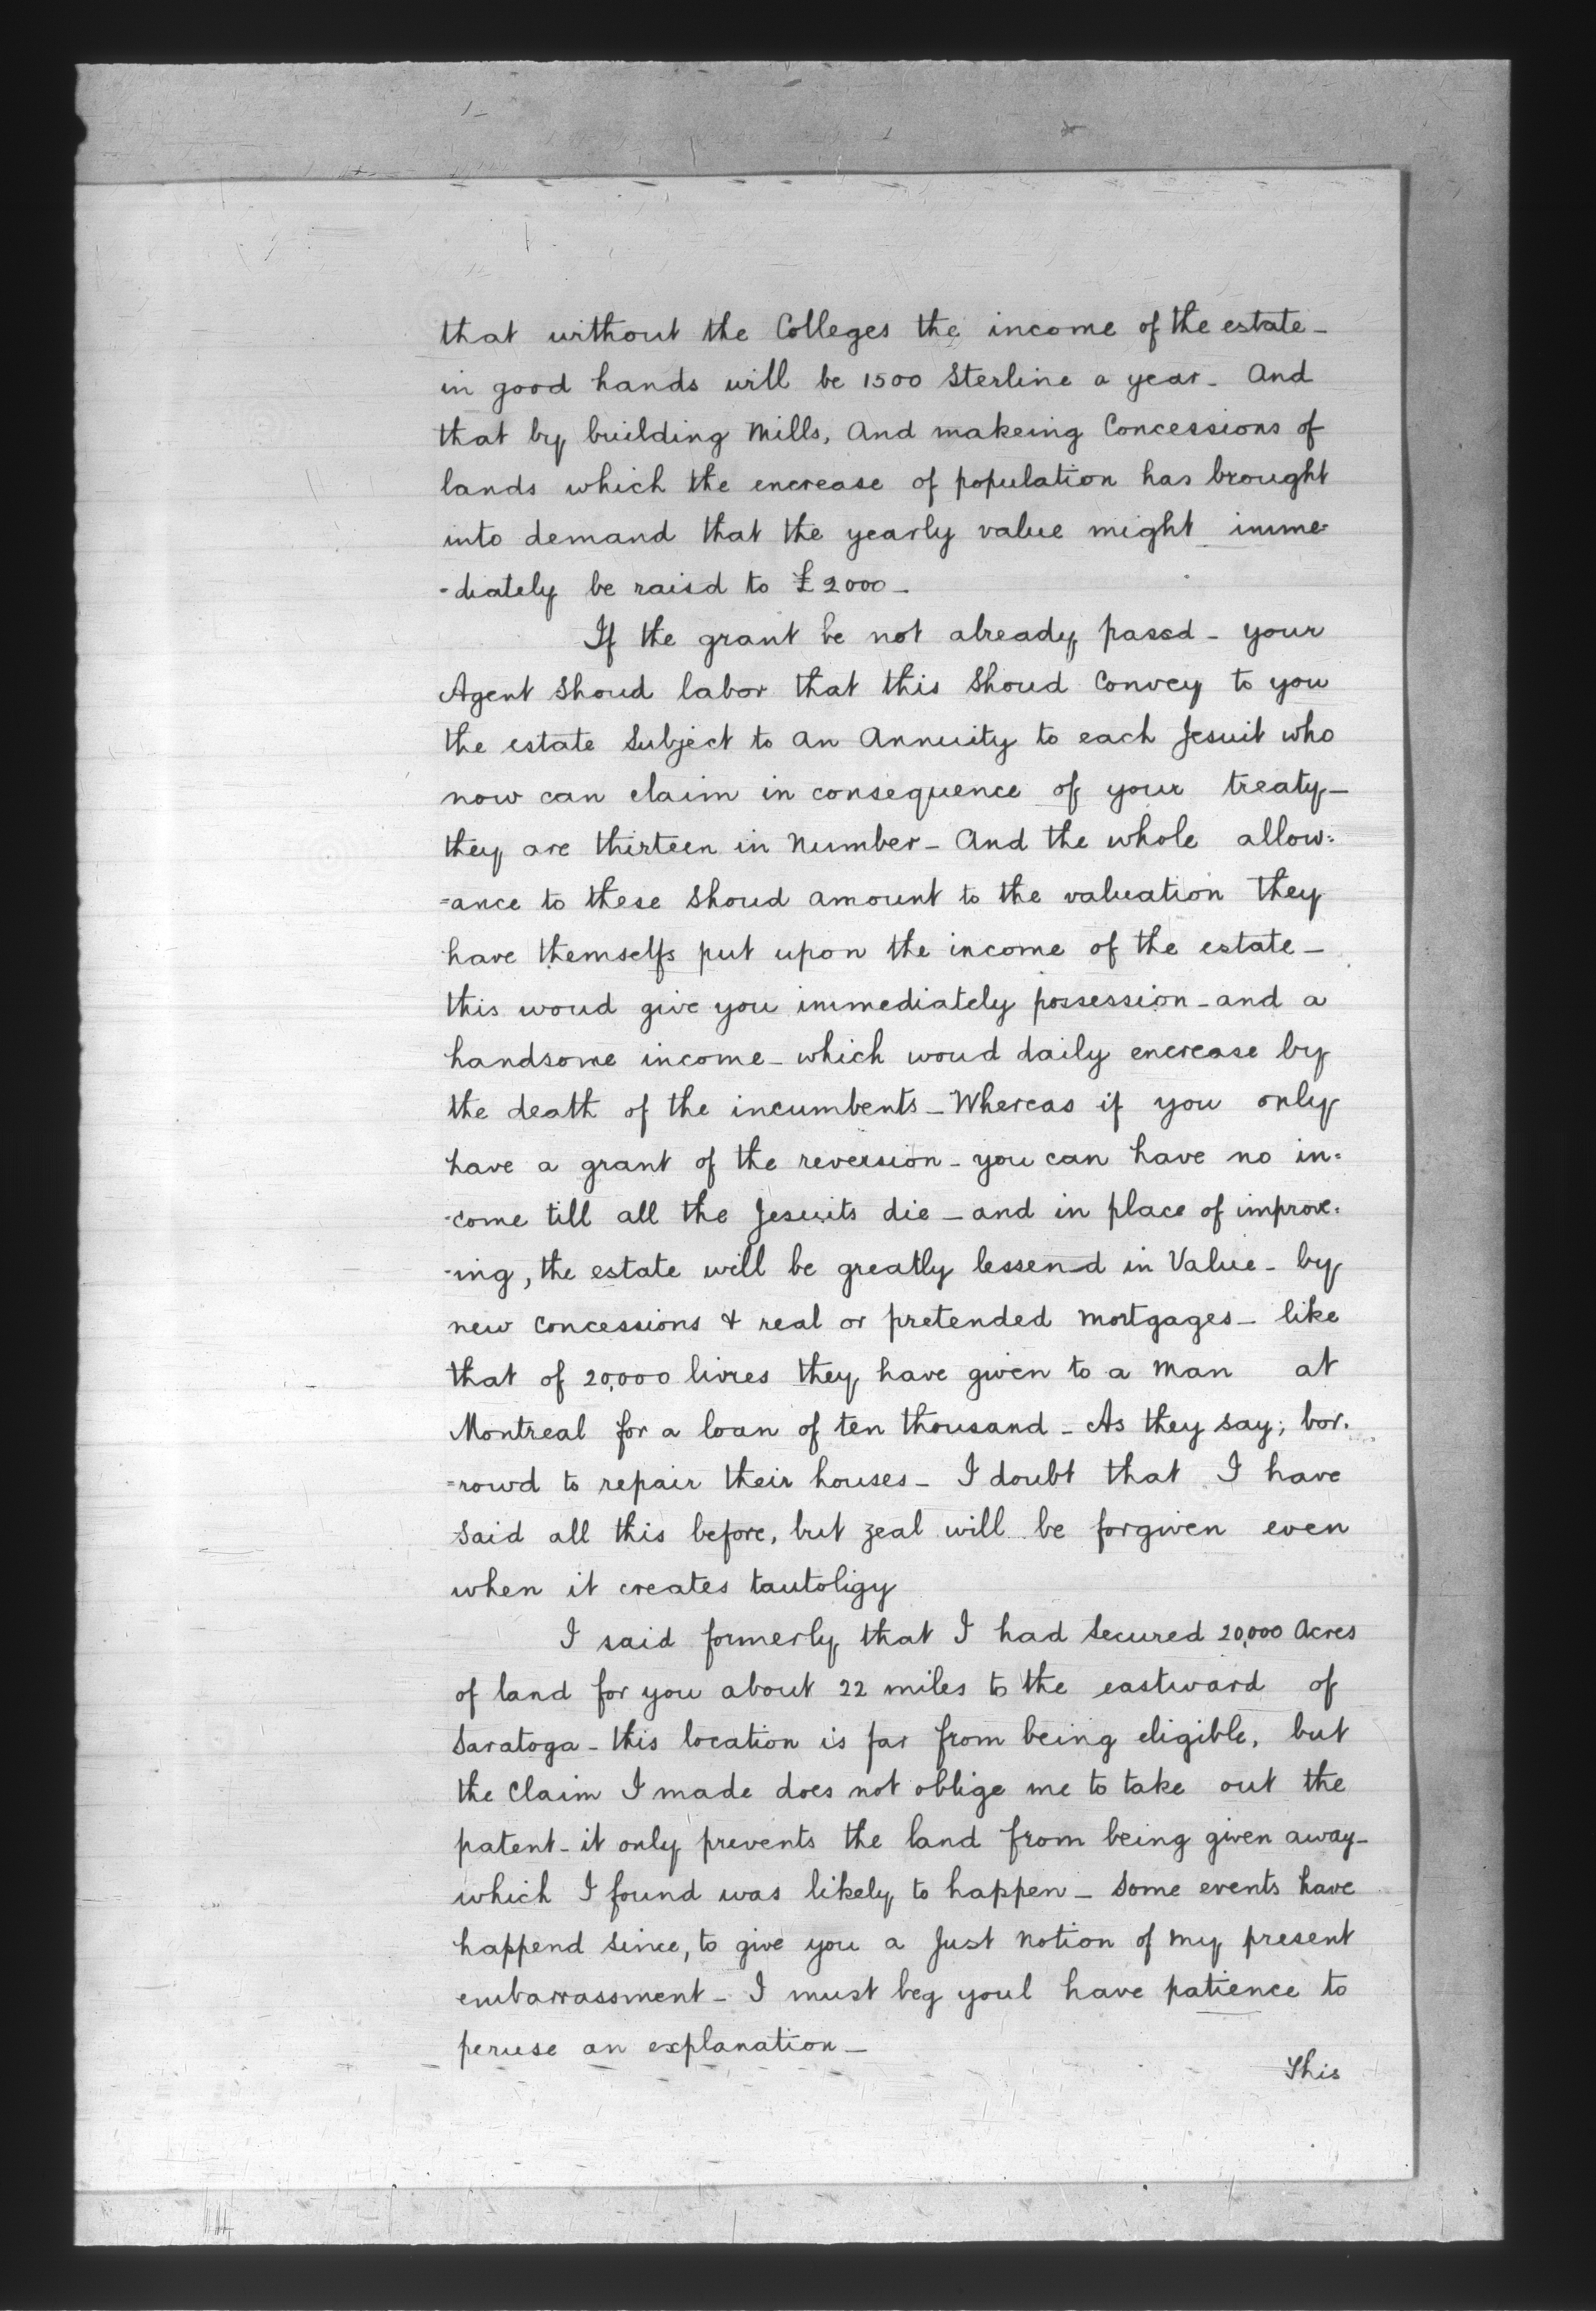 that without the Colleges the income of the estate -
in good hands will be 1500 Sterline a year - And
that by building Mills, And makeing Concessions of
lands which the encrease of population has brought
into demand that the yearly value might imme-
-diately be raisd to £2000 -
If the grant be not already passd - your
Agent Shoud labor that this Shoud Convey to you
the estate Subject to An Annuity to each Jesuit who
now can claim in consequence of your treaty -
they are thirteen in Number - And the whole allow:
=ance to these Shoud amount to the valuation they
have themselfs put upon the income of the estate -
this woud give you immediately possession - and a
handsome income - which woud daily encrease by
the death of the incumbents - Whereas if you only
have a grant of the reversion - you can have no in-
-come till all the Jesuits die - and in place of improve-
-ing, the estate will be greatly lessend in Value - by
new Concessions & real or pretended Mortgages - like
that of 20,000 livres they have given to a Man at
Montreal for a loan of ten thousand - As they say; bor-
=rowd to repair their houses - I doubt that I have
Said all this before, but zeal will be forgiven even
when it creates tautoligy
I said formerly that I had Secured 20,000 Acres
of land for you about 22 miles to the eastward of
Saratoga - this location is far from being eligible, but
the Claim I made does not oblige me to take out the
patent - it only prevents the land from being given away -
which I found was likely to happen - Some events have
happend Since, to give you a Just Notion of My present
embarrassment - I must beg youl have patience to
peruse an explanation -
This